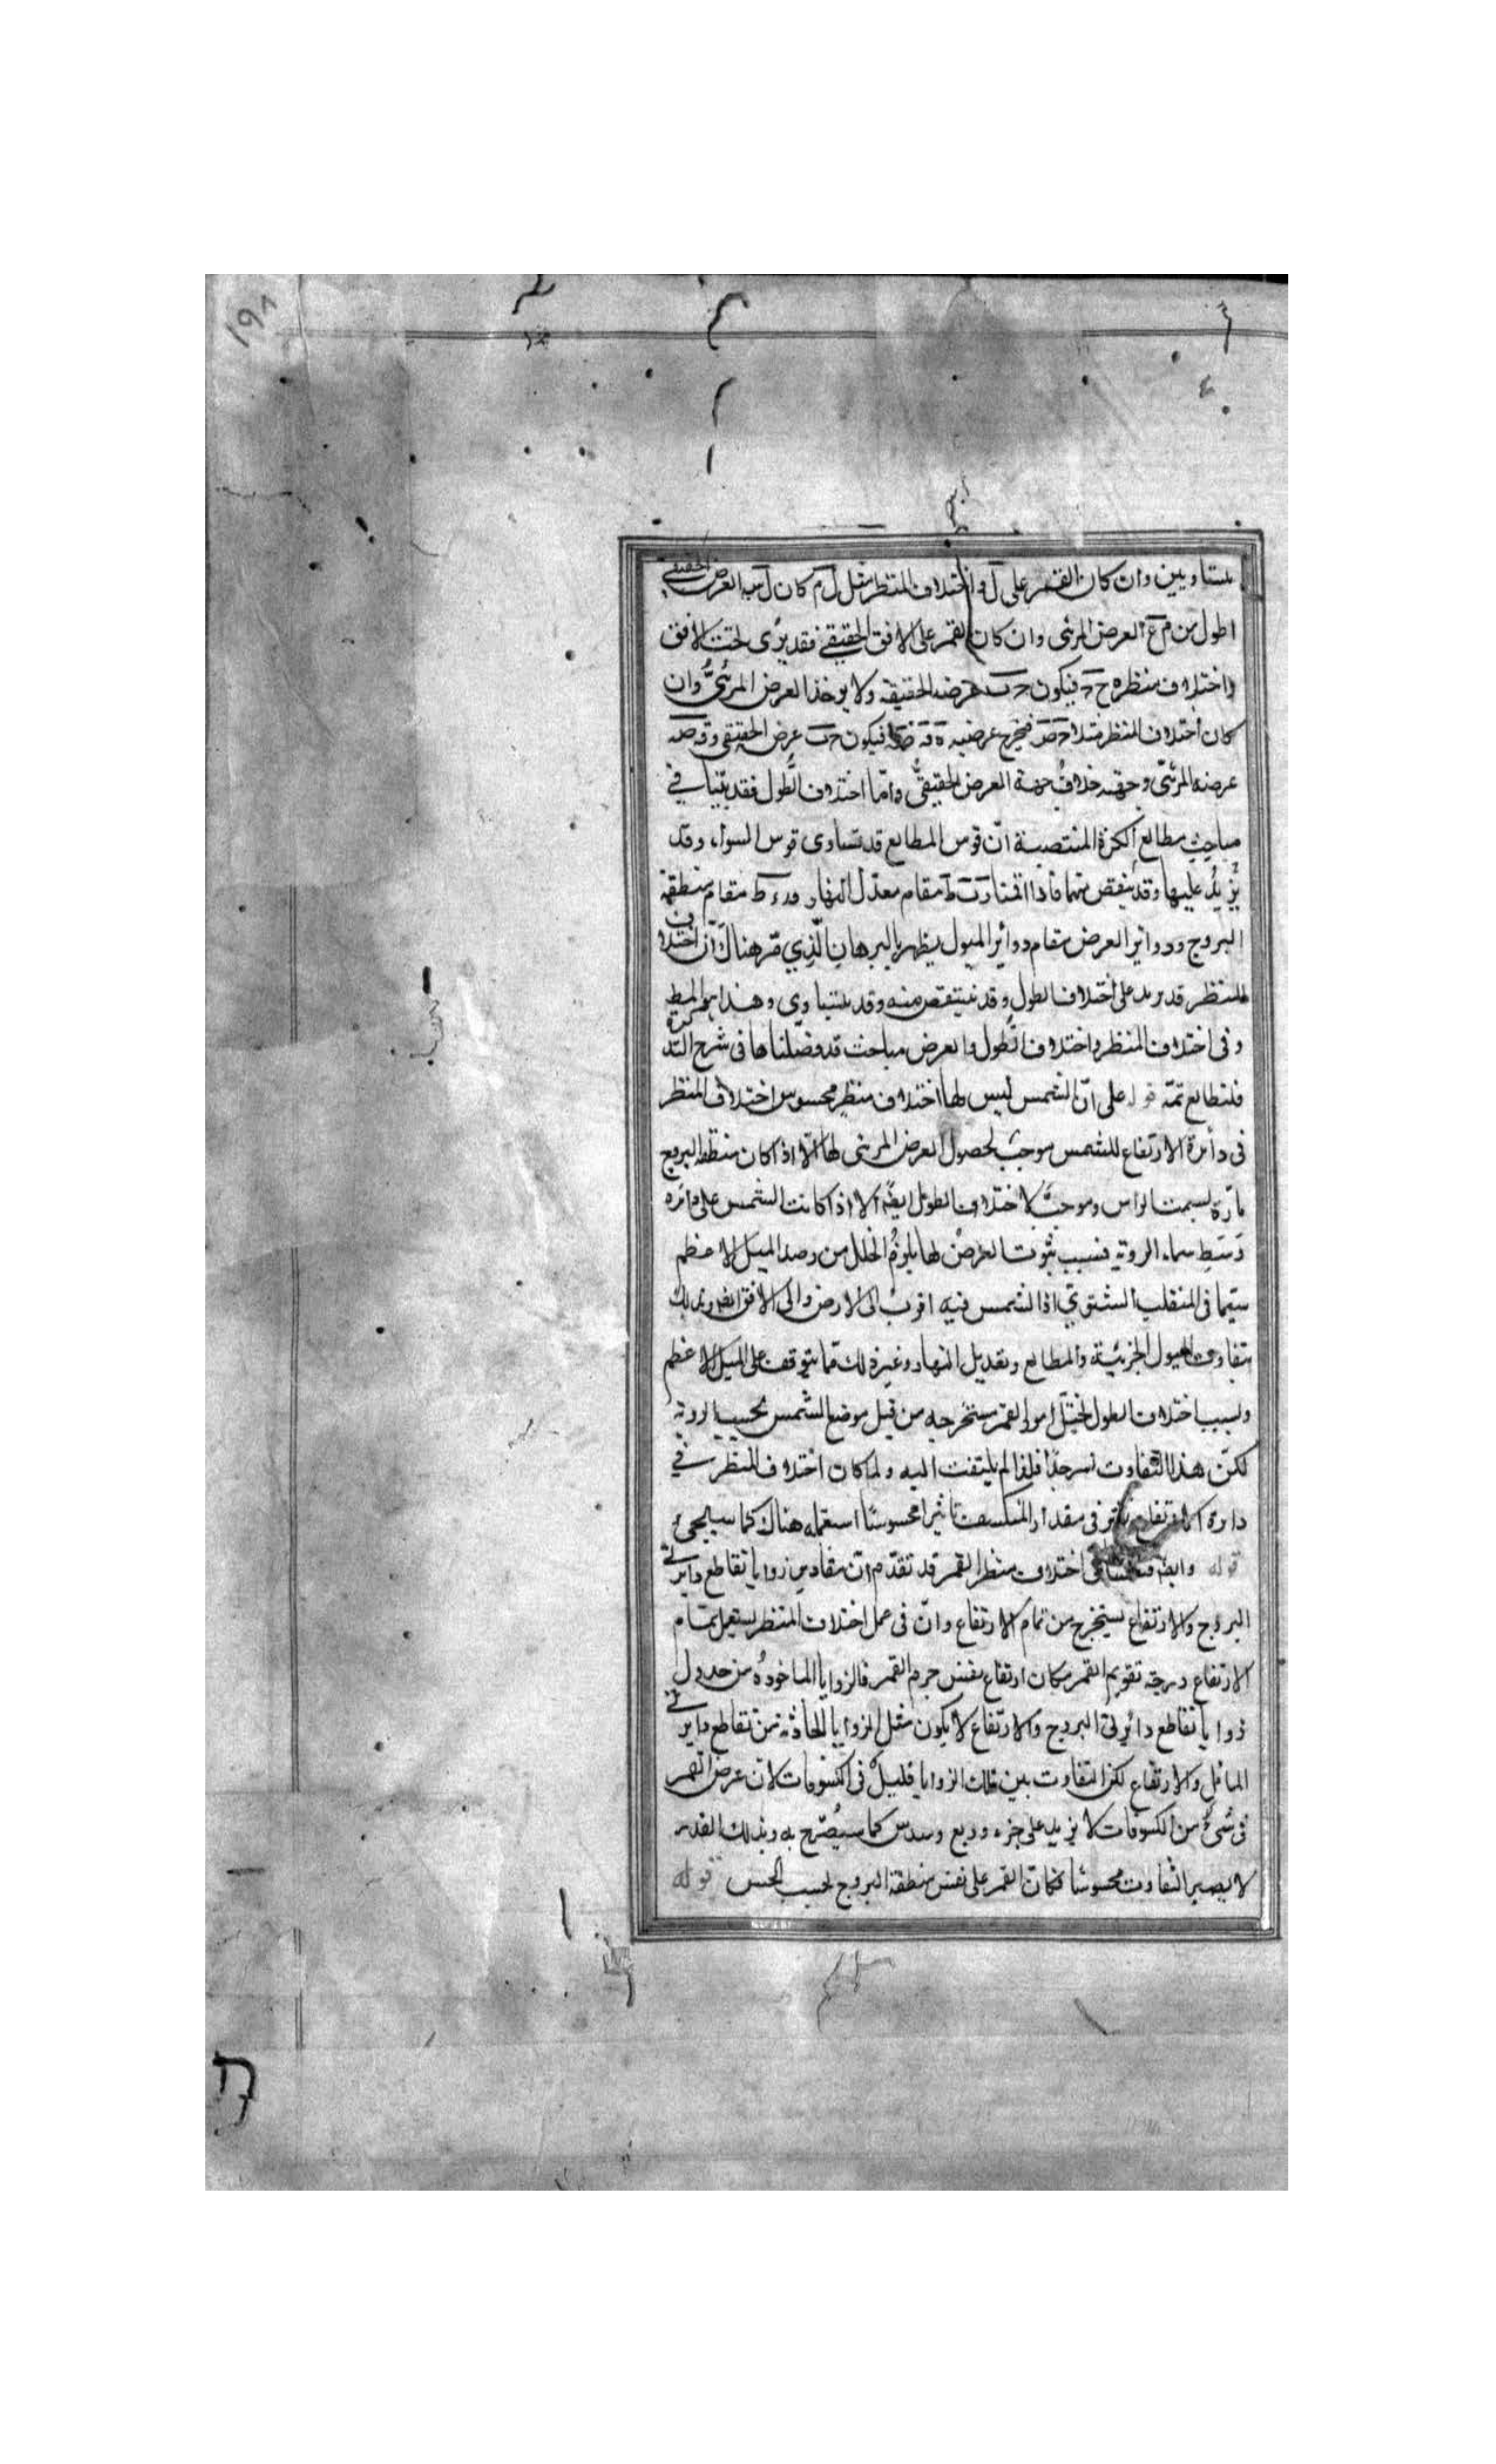 متساويين وان كان القمر على ل واختلاف المنظر مثل ل م كان ل س العرض الحقيقي
اطول من م ع العرض المرئى وان كان القمر على الافق الحقيقى فقد يرى تحت الافق
واختلاف منظره ح فيكون عرضه الحقيقة ولا يوخذ العرض المرئىُّ وان
كان اختلاف المنظر مثلا فيخرج عرضيه فيكون عرض الحقيقى
عرضه المرئىّ وجهته خلافُ جهة العرض الحقيقىّ وامّا اختلاف الطُّول فقد بيّنا في
مباحث مطالع الكرة المنتصبة انّ قوس المطالع قد تساوى قوس السواء وقد
يزيدُ عليها وقد ينقص منها فاذا اقمنا مقام معدّل النهار مقام منطقة
البروج ودوائر العرض مقام دوائر الميول يظهر بالبرهان الَّذِي مرّ هناك انّ اختلاف
المنظر قد يزيد على اختلاف الطول وقد ينتقص منه وقد يتساوى وهذا هو المط
وفى اختلاف المنظر واختلاف الطُّول والعرض مباحث قد فصّلناها فى شرح التذكرة
فلتطالع ثمّه قوله على انّ الشمس ليس لها اختلاف منظر محسوس اختلاف المنظر
فى دائرة الارتفاع للشمس موجبٌ لحصول العرض المرئى لها الّا اذا كان منطقة البروج
مارّة بسمت الراس وموجبٌ لاختلاف الطول ايضًا الا اذا كانت الشمس على دائره
وَسَطِ سماء الرويه فبسبب ثبوت العرض لها يلزمُ الخلل من رصد الميل الاعظم
سيّما فى المنقلب الشتوىّ اذ الشمس فيه اقرب الى الارض والى الافق ايضا وبذلك
يتفاوت الميول الجزئيّة والمطالع وتعديل النهار وغير ذلك ممّا يتوقف على الميل الاعظم
وبسبب اختلاف الطول يختلّ امور القمر مستخرجه من قبل موضع الشمس بحسب الرويه
لكنّ هذا التفاوت نسر جدّا فلهذا لم يلتفت اليه ولما كان اختلاف المنظر في
دايرة الارتفاع يوثر فى مقدار المنكسف تاثيرا محسوسًا استعمله هناك كما سيجئ
قوله وايضا اختلاف منظر القمر قد تقدّم انّ مقادير زوايا تقاطع دايرتى
البروج والارتفاع يستخرج من تمام الارتفاع وانّ فى عمل اختلاف المنظر يستعمل تمام
الارتفاع درجة تقويم القمر مكان ارتفاع نفس جرم القمر فالزوايا الماخوذُه من جدول
زوايا تقاطع دائرتى البروج والارتفاع لا يكون مثل الزوايا الحادثة من تقاطع دايرتى
المائل والارتفاع لكن التفاوت بين تلك الزوايا قليلٌ فى الكسوفات لان عرض القمر
فى شئ من الكسوفات لا يزيد على جزء وربع وسدس كما سيُصّرح به وبذلك القدر
لا يصير التفاوت محسوسًا فكانّ القمر على نفس منطقة البروج بحسب الحس قوله